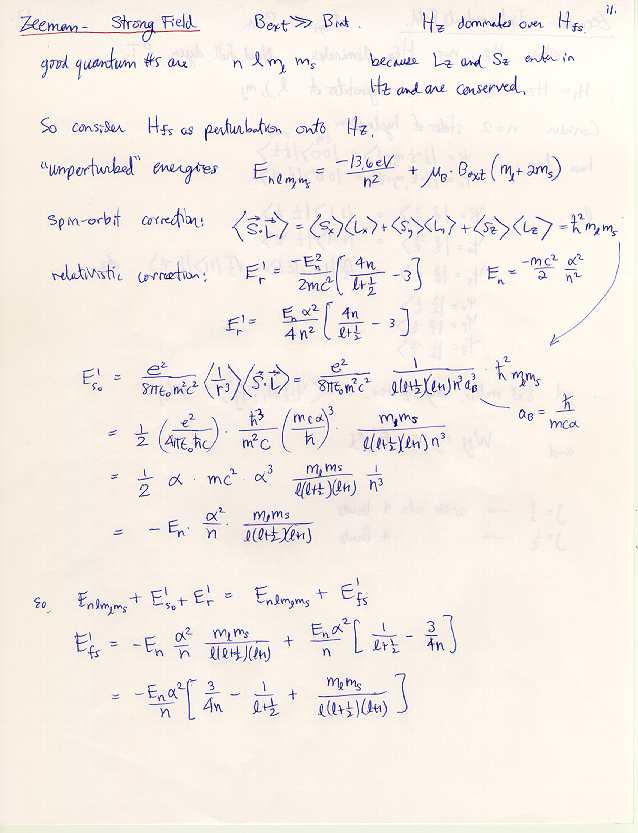 11.
Zeeman - Strong Field    B_ext >> B_int.    H_Z dominates over H_fs.
good quantum #s are    n l m_l m_s    because L_z and S_z enter in
H_Z and are conserved.
So consider H_fs as perturbation onto H_Z.
"unperturbed" energies    E_{n l m_l m_s} = -13.6eV/n² + μ_B·B_ext (m_l + 2m_s)
spin-orbit correction:    <S⃗·L⃗> = <S_x><L_x> + <S_y><L_y> + <S_z><L_z> = ħ² m_l m_s
relativistic correction:    E_r^1 = -E_n²/2mc² [4n/(l+½) - 3]    E_n = -mc²/2 α²/n²
E_r^1 = E_n α²/4n² [4n/(l+½) - 3]
E_so^1 = e²/8πε₀m²c² <1/r³> <S⃗·L⃗> = e²/8πε₀m²c² 1/(l(l+½)(l+1)n³a_B³) · ħ² m_l m_s
a_B = ħ/mcα
= ½ (e²/4πε₀ħc) · ħ³/m²c (mcα/ħ)³ · m_l m_s/(l(l+½)(l+1)n³)
= ½ α · mc² α³ m_l m_s/(l(l+½)(l+1)) 1/n³
= -E_n · α²/n · m_l m_s/(l(l+½)(l+1))
so, E_{n l m_l m_s} + E_so^1 + E_r^1 = E_{n l m_l m_s} + E_fs^1
E_fs^1 = -E_n α²/n m_l m_s/(l(l+½)(l+1)) + E_n α²/n [1/(l+½) - 3/4n]
= -E_n α²/n [3/4n - 1/(l+½) + m_l m_s/(l(l+½)(l+1))]